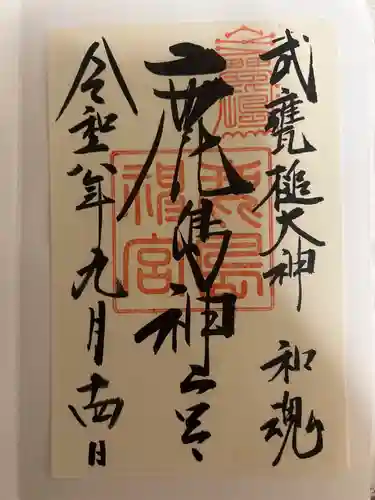 武甕槌大神 和魂
鹿島神宮
令和年九月十四日
鹿島神宮